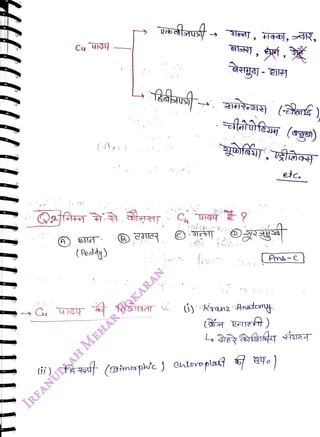 C₄ पादप → एकबीजपत्री → गन्ना, मक्का, ज्वार,
बाजरा,
घास
→ द्विबीजपत्री → अमरेन्थस (चौलाई)
चीनोपोडियम (बथुआ)
यूफोर्बिया, एट्रीप्लेक्स
etc.
Q2 निम्न में से कौनसा C₄ पादप है ?
Ⓐ धान Ⓑ टमाटर Ⓒ गन्ना Ⓓ सूरजमुखी
(Peddy)
Ans-C
→ C₄ पादप की विशेषता (i) Kranz Anatomy
(क्रेंज एनाटमी)
↳ दोहरे कोशिकीय संगठन
(ii) द्विरूपी (Dimorphic) Chloroplast की उप०)
IRFANULLAH MEHAR POKARAN